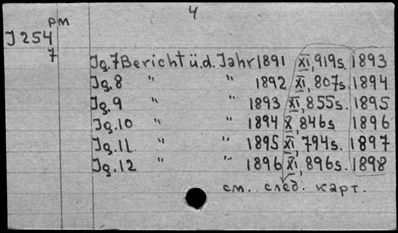 рм 4
J 254
7
Jg.7 Bericht ü.d. Jahr 1891 XI, 919s. 1893
Jg.8 " " 1892 XI, 807s. 1894
Jg.9 " " 1893 XI, 855s. 1895
Jg.10 " " 1894 X, 846s 1896
Jg.11 " " 1895 XI, 794s. 1897
Jg.12 " " 1896 XI, 896s. 1898
см. след. карт.